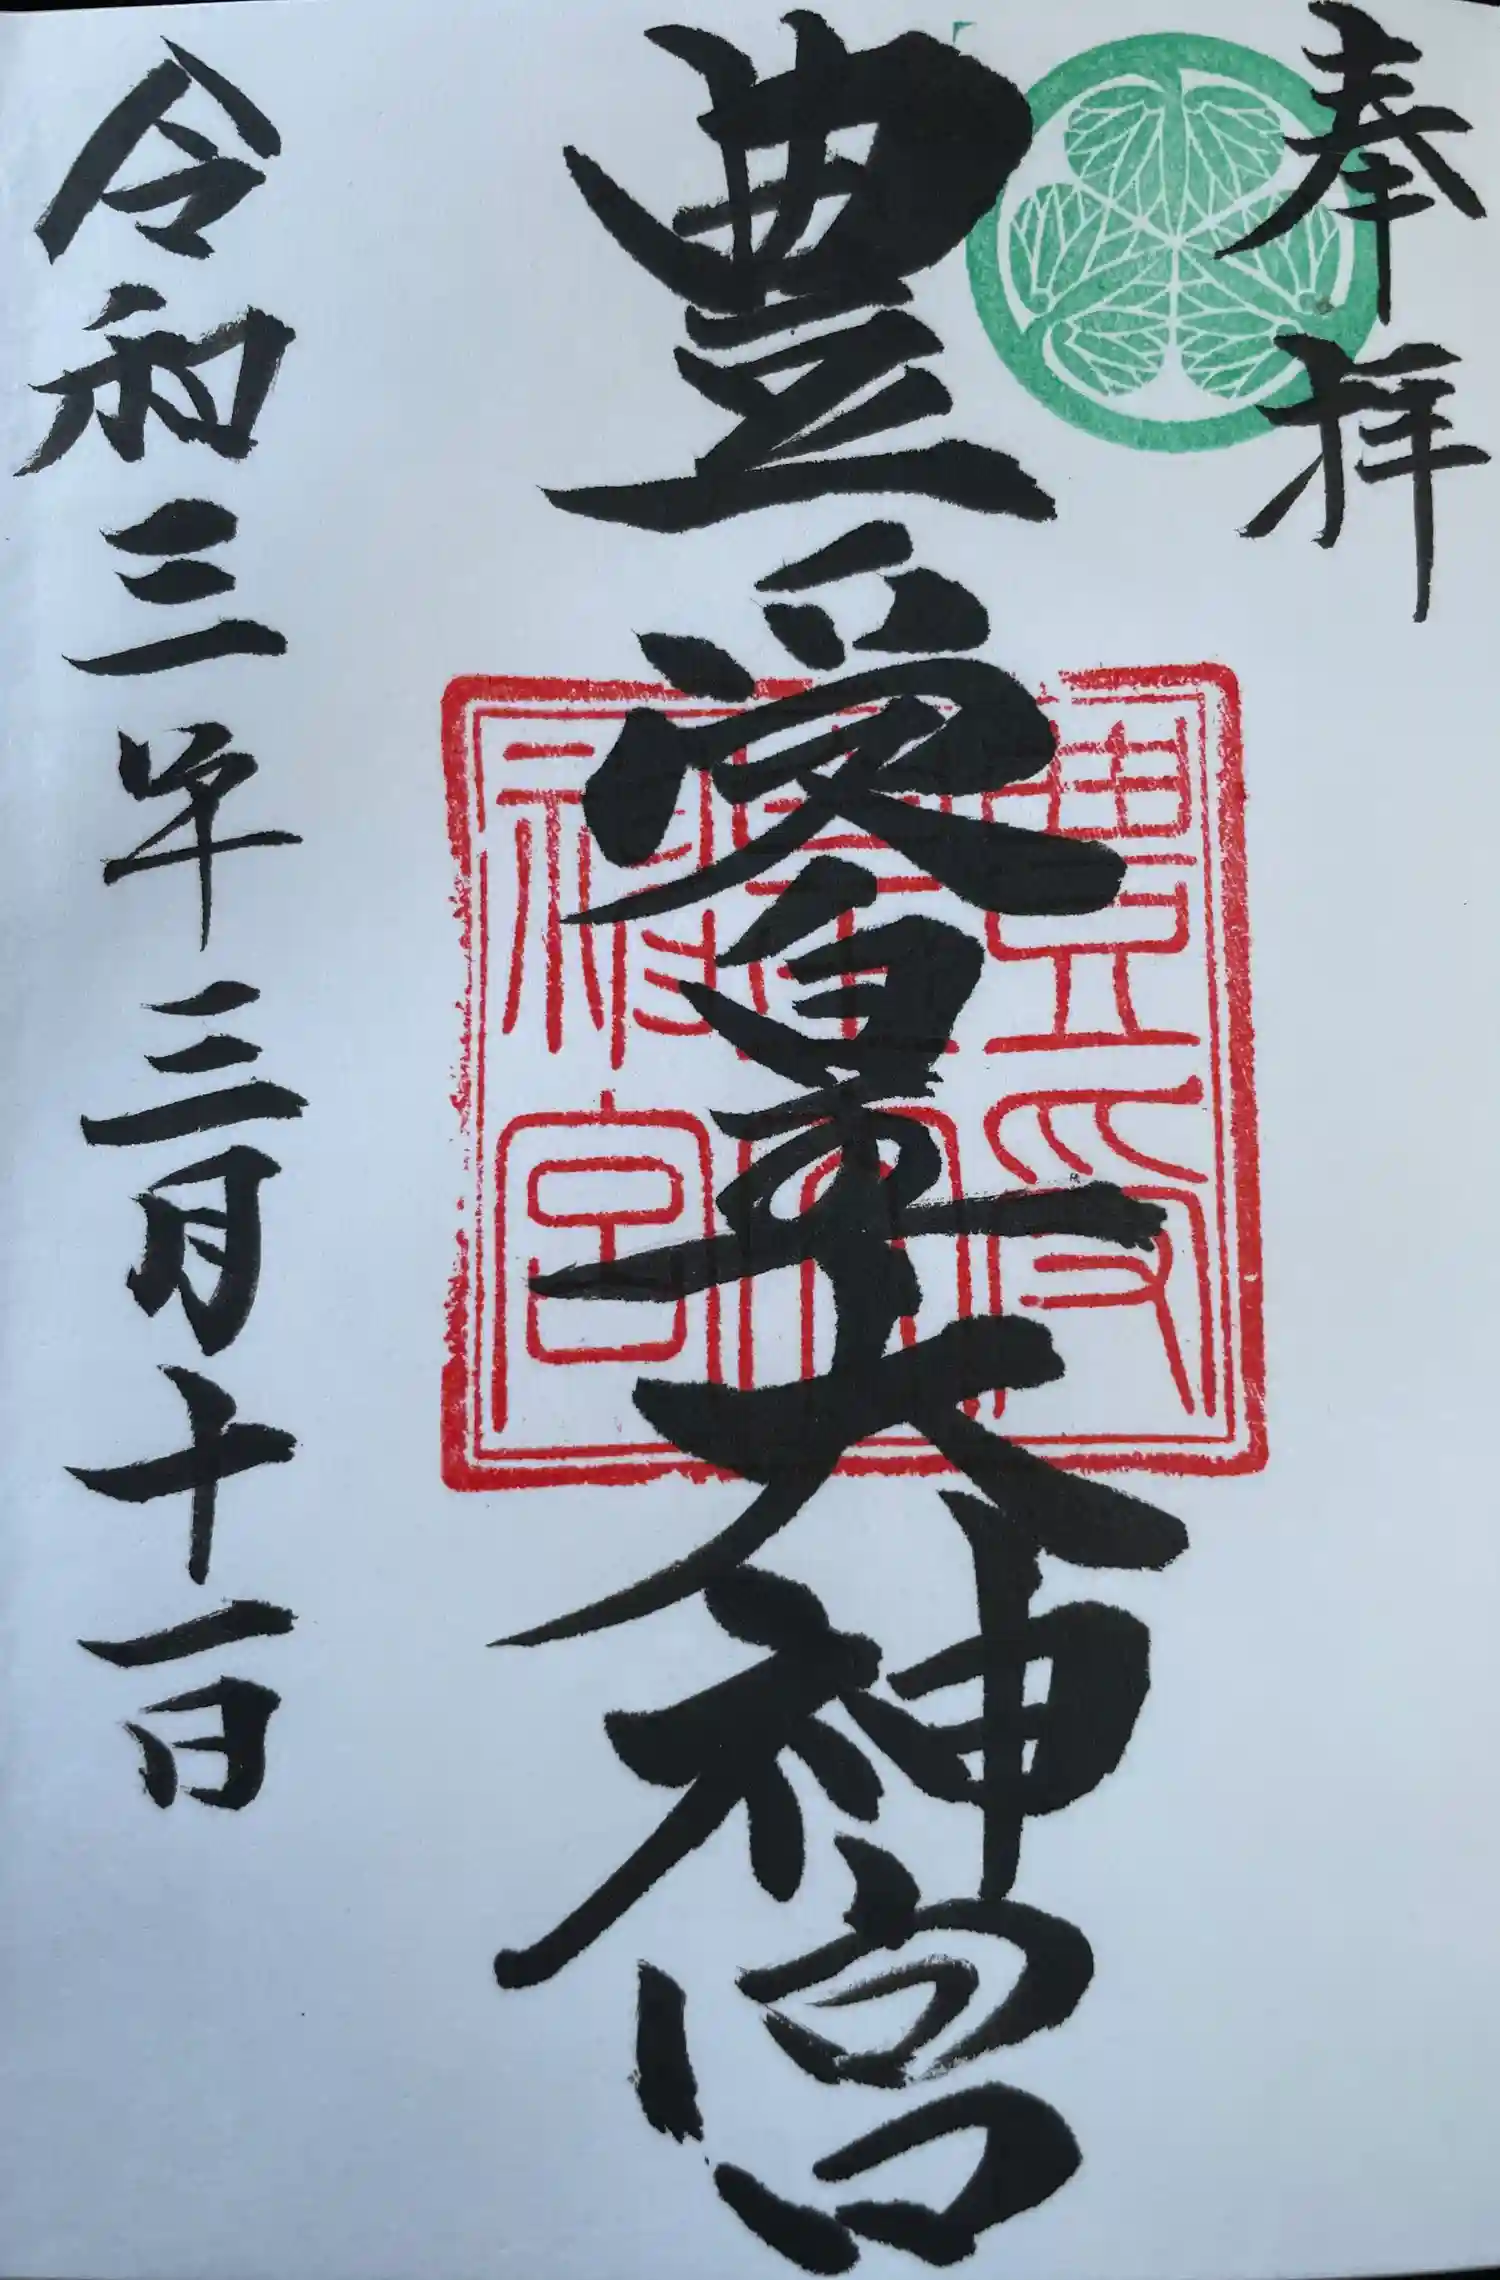 奉拝
豊受皇大神宮
令和三年三月十一日
豊受
皇大
神宮